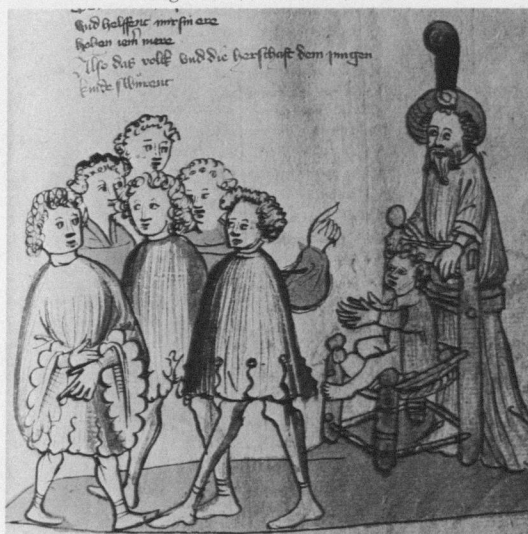 und helffent mir sin ere
haben iemͥ mere
Also das volk vnd die herschaft dem jungen
kinde swürent